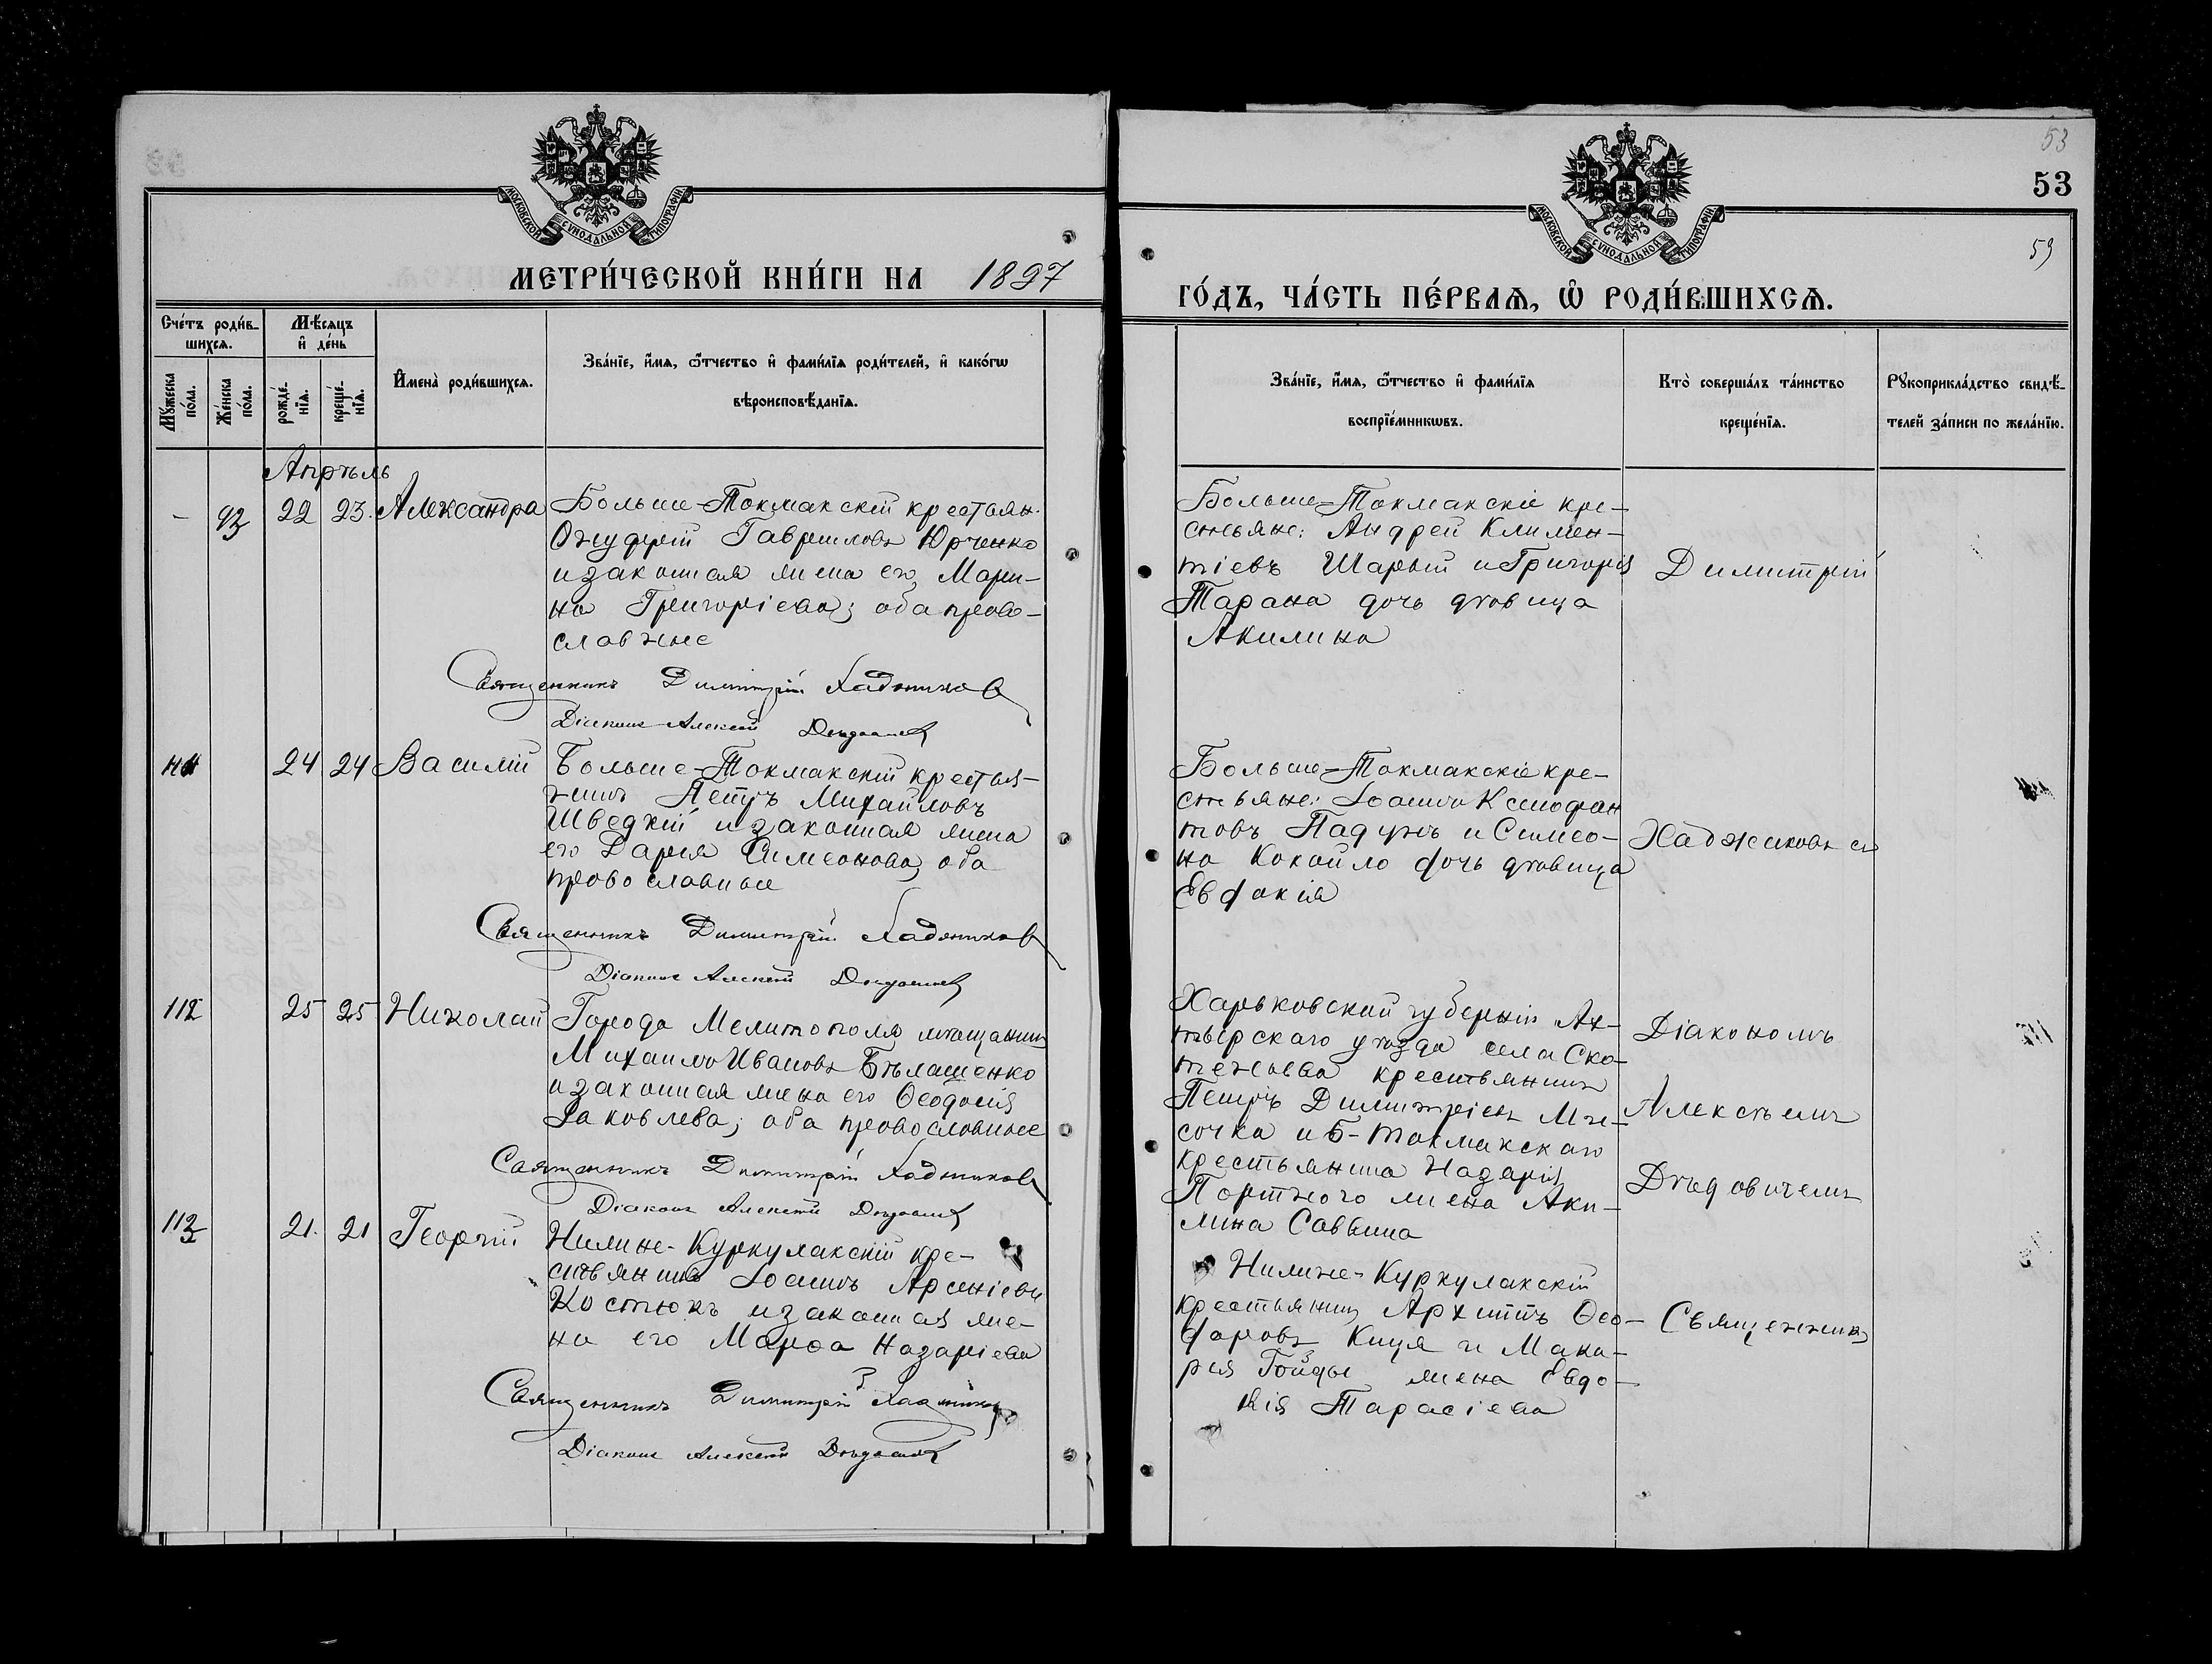 МОСКОВСКОЙ СѴНОДАЛЬНОЙ ТИПОГРАФІИ
МЕТРИ́ЧЕСКОЙ КНИ́ГИ НА 1897
Сче́тъ роди́в-
шихсѧ.
Мѣ́сѧцъ
и҆ де́нь
Мꙋ́жеска
по́ла.
Же́нска
по́ла.
рожде́-
нїѧ.
креще́-
нїѧ.
И҆мена̀ роди́вшихсѧ.
Зва́нїе, и҆́мѧ, ѻ҆́тчество и҆ фами́лїѧ роди́телей, и҆ како́гѡ
вѣроисповѣ́данїѧ.
Апрѣль
- 93 22 23. Александра Больше-Токмакскій крестьян.
Онуфрій Гавриловъ Юрченко
и законная жена его Мари-
на Григоріева; оба право-
славные
Священникъ Димитрій Хаджинов
Діаконъ Алексій
24 24 Василій Больше-Токмакскій крестья-
нинъ Петръ Михайловъ
Шведкій и законная жена
его Дарья Симеонова, оба
православные
Священникъ Димитрій Хаджинов
Діаконъ Алексій
112 25 25 Николай Города Мелитополя мѣщанинъ
Михаилъ Ивановъ Бѣлашенко
и законная жена его Ѳеодосія
Яковлева; оба православные
Священникъ Димитрій Хаджинов
Діаконъ Алексій
113 21. 21 Георгій Нижне-Куркулакскій кре-
стьянинъ Іоаннъ Арсеніевъ
Костюкъ и законная же-
на его Марѳа Назаріева
Священникъ Димитрій Хаджинов
Діаконъ Алексій
53
53
МОСКОВСКОЙ СѴНОДАЛЬНОЙ ТИПОГРАФІИ
59
ГО́ДЪ, ЧА́СТЬ ПЕ́РВАѦ, Ѡ҆ РОДИ́ВШИХСѦ.
Зва́нїе, и҆́мѧ, ѻ҆́тчество и҆ фами́лїѧ
воспрїе́мникѡвъ.
Кто̀ соверша́лъ та́инство
креще́нїѧ.
Рꙋкоприкла́дство свидѣ́-
телей за́писи по жела́нїю.
Больше-Токмакскіе кре-
стьяне: Андрей Климен-
тіевъ Шарый и Григорія
Тарана дочь дѣвица
Акилина
Димитрій
Больше-Токмакскіе кре-
стьяне: Іоаннъ Ксенофан
товъ Падунъ и Симео-
на Кокайло дочь дѣвица
Евдокія
Харьковской губерніи Ах-
тырскаго уѣзда села
крестьянинъ
Петръ Димитріевъ
и Б-Токмакскаго
крестьянина Назарія
Портного жена Аки-
лина Саввина
Діакономъ
Алексѣемъ
Нижне-Куркулакскій
крестьянинъ Архиппъ Ѳео-
доровъ Куця и Мака-
рія Гойды жена Евдо-
кія Тарасіева
Священникъ